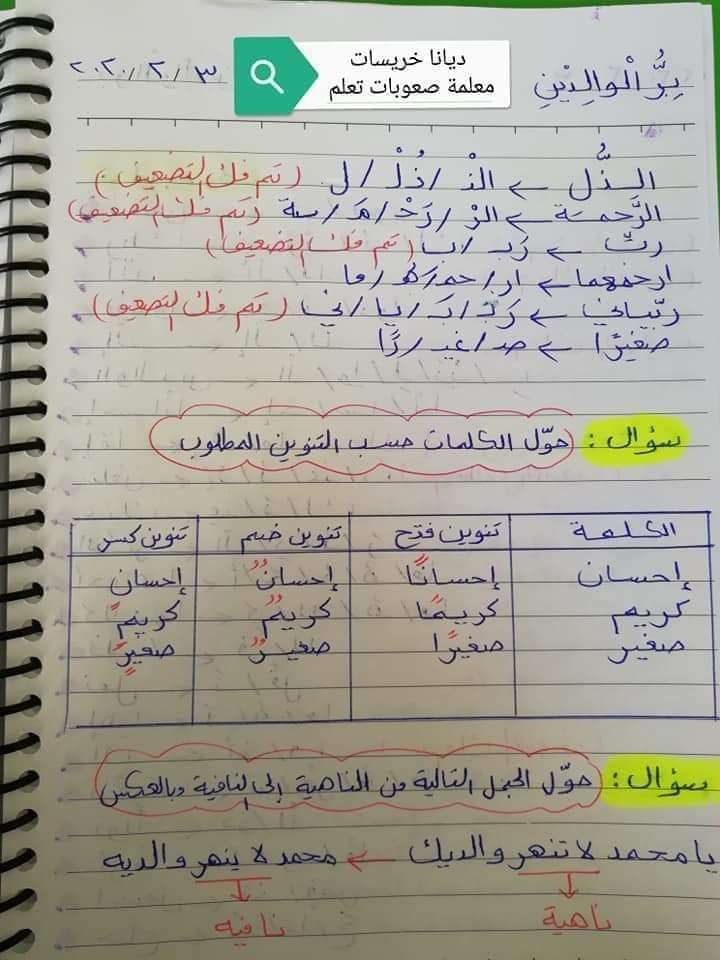 ديانا خريسات
معلمة صعوبات تعلم
بِرُّ الْوالِدَيْنِ ٣ / ٢ / ٢٠٢٠
الذُّل ← الْذ / ذُلْ / ل (تم فك التضعيف)
الرَّحمة ← الرْ / رَحْ / مَـ / ـة (تم فك التضعيف)
ربّ ← رَب / ب (تم فك التضعيف)
ارحمهما ← ار / حمـ / هُـ / ما
ربّياني ← رَبْ / بَـ / يا / ني (تم فك التضعيف)
صغيرًا ← صـ / غيـ / رًا
سؤال : حوّل الكلمات حسب التنوين المطلوب
الكلمة تنوين فتح تنوين ضم تنوين كسر
إحسان إحسانًا إحسانٌ إحسانٍ
كريم كريمًا كريمٌ كريمٍ
صغير صغيرًا صغيرٌ صغيرٍ
سؤال : حوّل الجمل التالية من الناهية إلى النافية وبالعكس
يا محمد لا تنهر والديك ← محمد لا ينهر والديه
ناهية نافيه